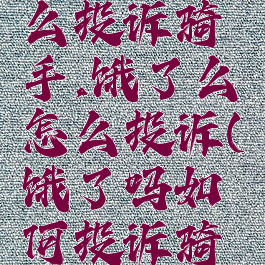 么投诉骑
手.饿了么
怎么投诉(
饿了吗如
何投诉骑